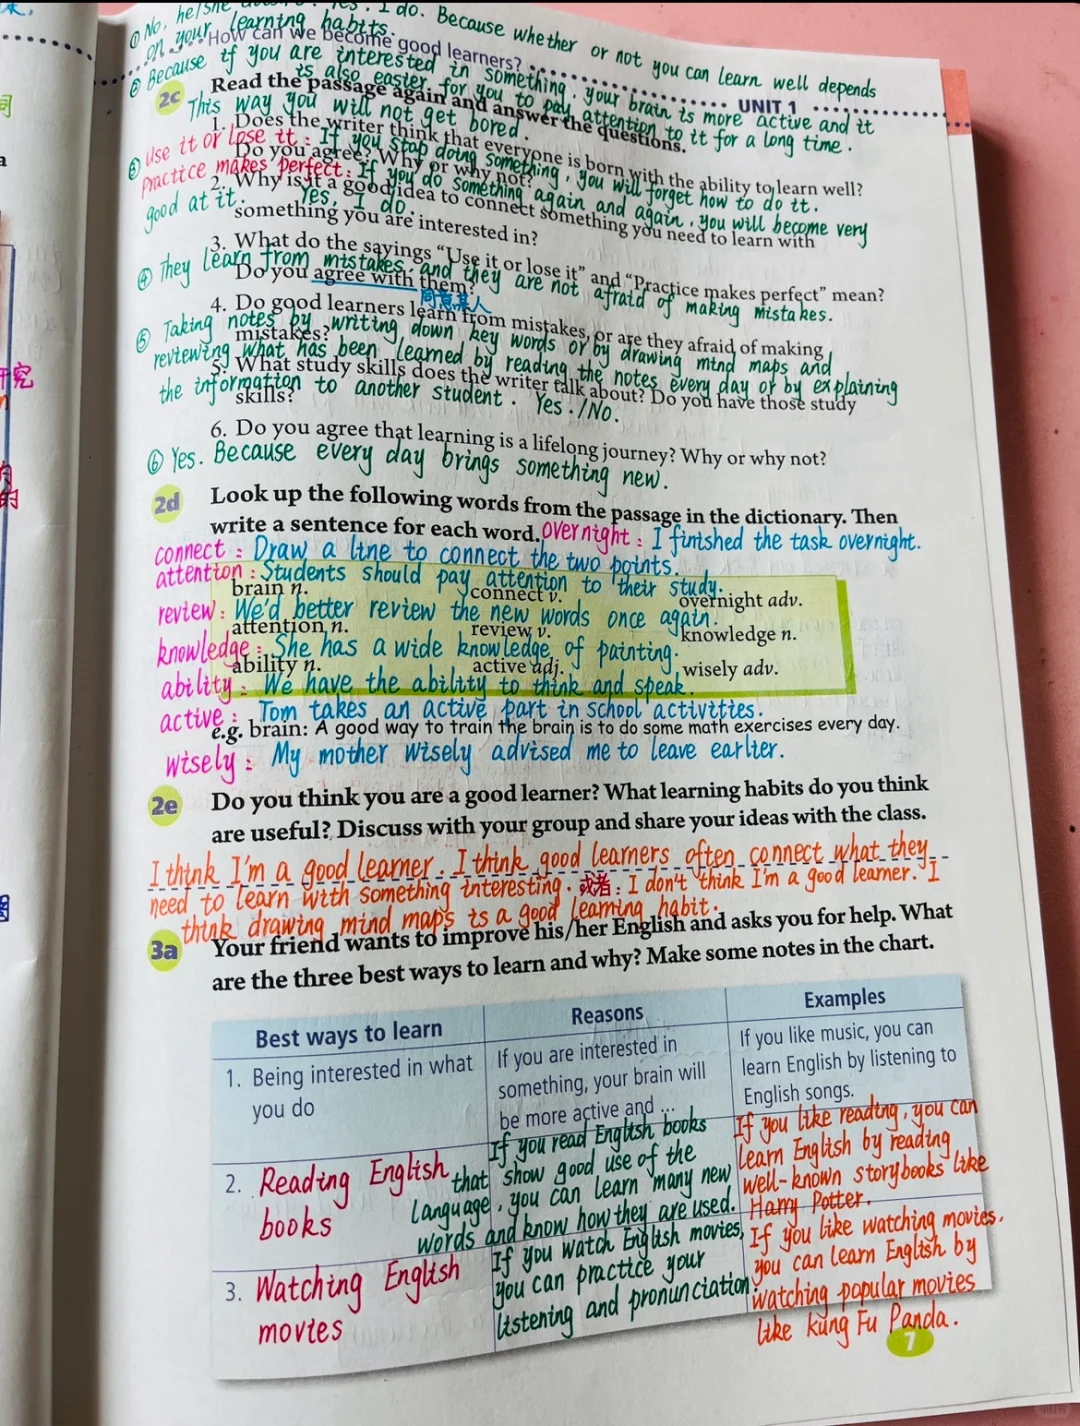 ① No, he/she does. Yes, I do. Because whether or not you can learn well depends
on your learning habits.
How can we become good learners?
② Because if you are interested in something, your brain is more active and it
is also easter for you to pay attention to it for a long time.
UNIT 1
2c Read the passage again and answer the questions.
This way you will not get bored.
1. Does the writer think that everyone is born with the ability to learn well?
Do you agree? Why or why not?
③ Use it or lose it: If you stop doing something, you will forget how to do it.
Practice makes perfect: If you do something again and again, you will become very
good at it. Yes, I do.
2. Why is it a good idea to connect something you need to learn with
something you are interested in?
3. What do the sayings “Use it or lose it” and “Practice makes perfect” mean?
Do you agree with them?
同意某人
④ They learn from mistakes, and they are not afraid of making mistakes.
4. Do good learners learn from mistakes, or are they afraid of making
mistakes?
⑤ Taking notes by writing down key words or by drawing mind maps and
reviewing what has been learned by reading the notes every day or by explaining
the information to another student. Yes./No.
5. What study skills does the writer talk about? Do you have those study
skills?
6. Do you agree that learning is a lifelong journey? Why or why not?
⑥ Yes. Because every day brings something new.
2d Look up the following words from the passage in the dictionary. Then
write a sentence for each word.
overnight: I finished the task overnight.
connect: Draw a line to connect the two points.
attention: Students should pay attention to their study.
brain n. connect v. overnight adv.
review: We'd better review the new words once again.
attention n. review v. knowledge n.
knowledge: She has a wide knowledge of painting.
ability n. active adj. wisely adv.
ability: We have the ability to think and speak.
active: Tom takes an active part in school activities.
e.g. brain: A good way to train the brain is to do some math exercises every day.
wisely: My mother wisely advised me to leave earlier.
2e Do you think you are a good learner? What learning habits do you think
are useful? Discuss with your group and share your ideas with the class.
I think I'm a good learner. I think good learners often connect what they
need to learn with something interesting. 或者: I don't think I'm a good learner. I
think drawing mind maps is a good learning habit.
3a Your friend wants to improve his/her English and asks you for help. What
are the three best ways to learn and why? Make some notes in the chart.
Best ways to learn
Reasons
Examples
1. Being interested in what
you do
If you are interested in
something, your brain will
be more active and ...
If you like music, you can
learn English by listening to
English songs.
2. Reading English
books
If you read English books
that show good use of the
language, you can learn many new
words and know how they are used.
If you like reading, you can
learn English by reading
well-known storybooks like
Harry Potter.
3. Watching English
movies
If you watch English movies,
you can practice your
listening and pronunciation.
If you like watching movies,
you can learn English by
watching popular movies
like Kung Fu Panda.
7
究
的